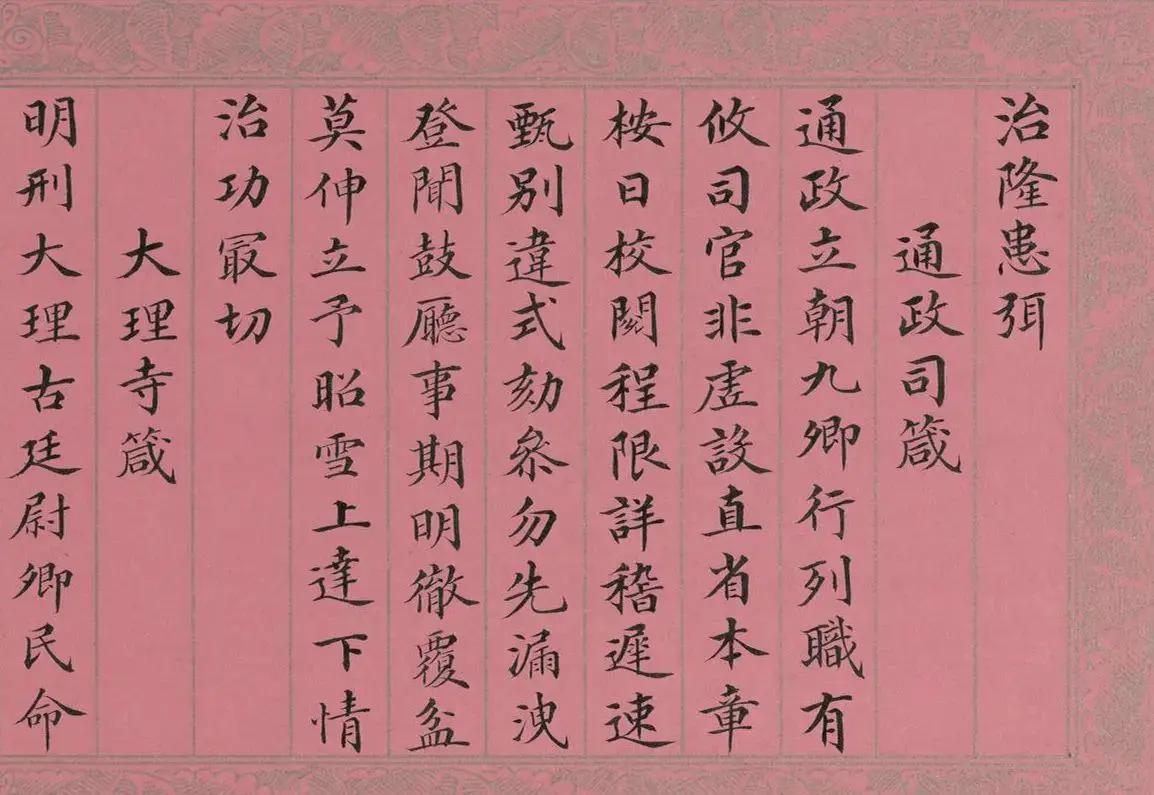 治隆患弭
通政司箴
通政立朝九卿行列職有
攸司官非虛設直省本章
按日校閱程限詳稽遲速
甄別違式劾叅勿先漏洩
登聞鼓廳事期明徹覆盆
莫伸立予昭雪上達下情
治功冣切
大理寺箴
明刑大理古廷尉卿民命